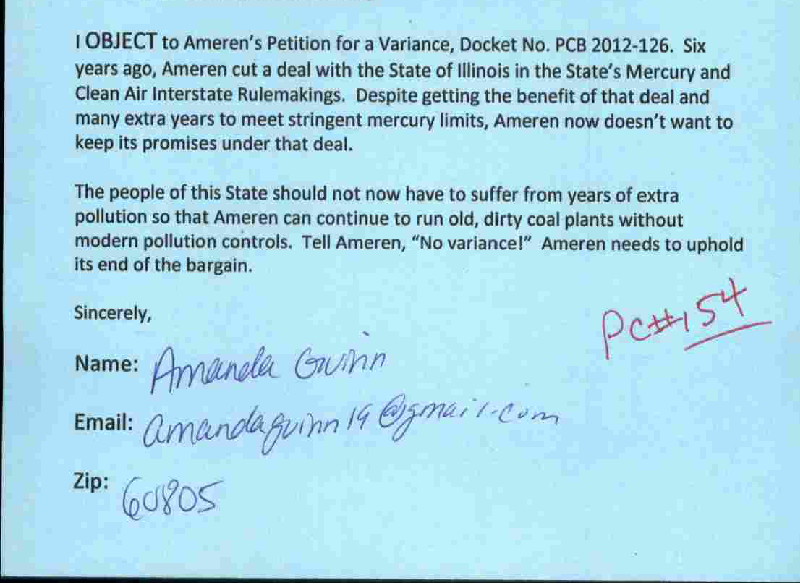 I OBJECT to Ameren's Petition for a Variance, Docket No. PCB 2012-126.  Six
years ago, Ameren cut a deal with the State of Illinois in the State's Mercury and
Clean Air Interstate Rulemakings.  Despite getting the benefit of that deal and
many extra years to meet stringent mercury limits, Ameren now doesn't want to
keep its promises under that deal.
The people of this State should not now have to suffer from years of extra
pollution so that Ameren can continue to run old, dirty coal plants without
modern pollution controls.  Tell Ameren, "No variance!"  Ameren needs to uphold
its end of the bargain.
Sincerely,
PC#154
Name: Amanda Guinn
Email: amandaguinn19@gmail.com
Zip: 60805